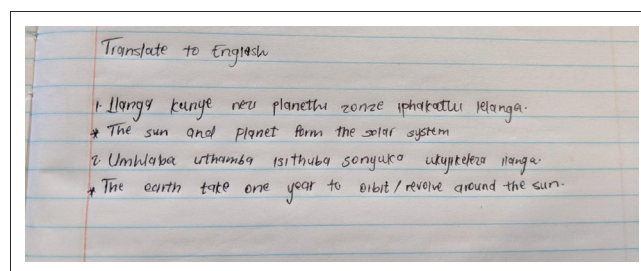 Translate to English
1. Ilanga kunye nezi planethi zonze iphakathi lelanga.
* The sun and planet form the solar system
2. Umhlaba uthamba isithuba sonyuka ukujikeleza ilanga.
* The earth take one year to orbit / revolve around the sun.